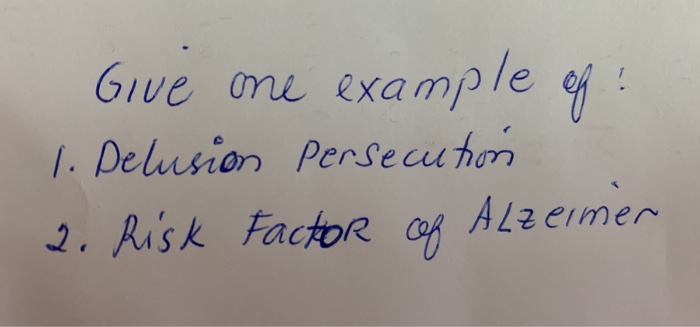 Give one example of :
1. Delusion Persecution
2. Risk Factor of ALzeimer